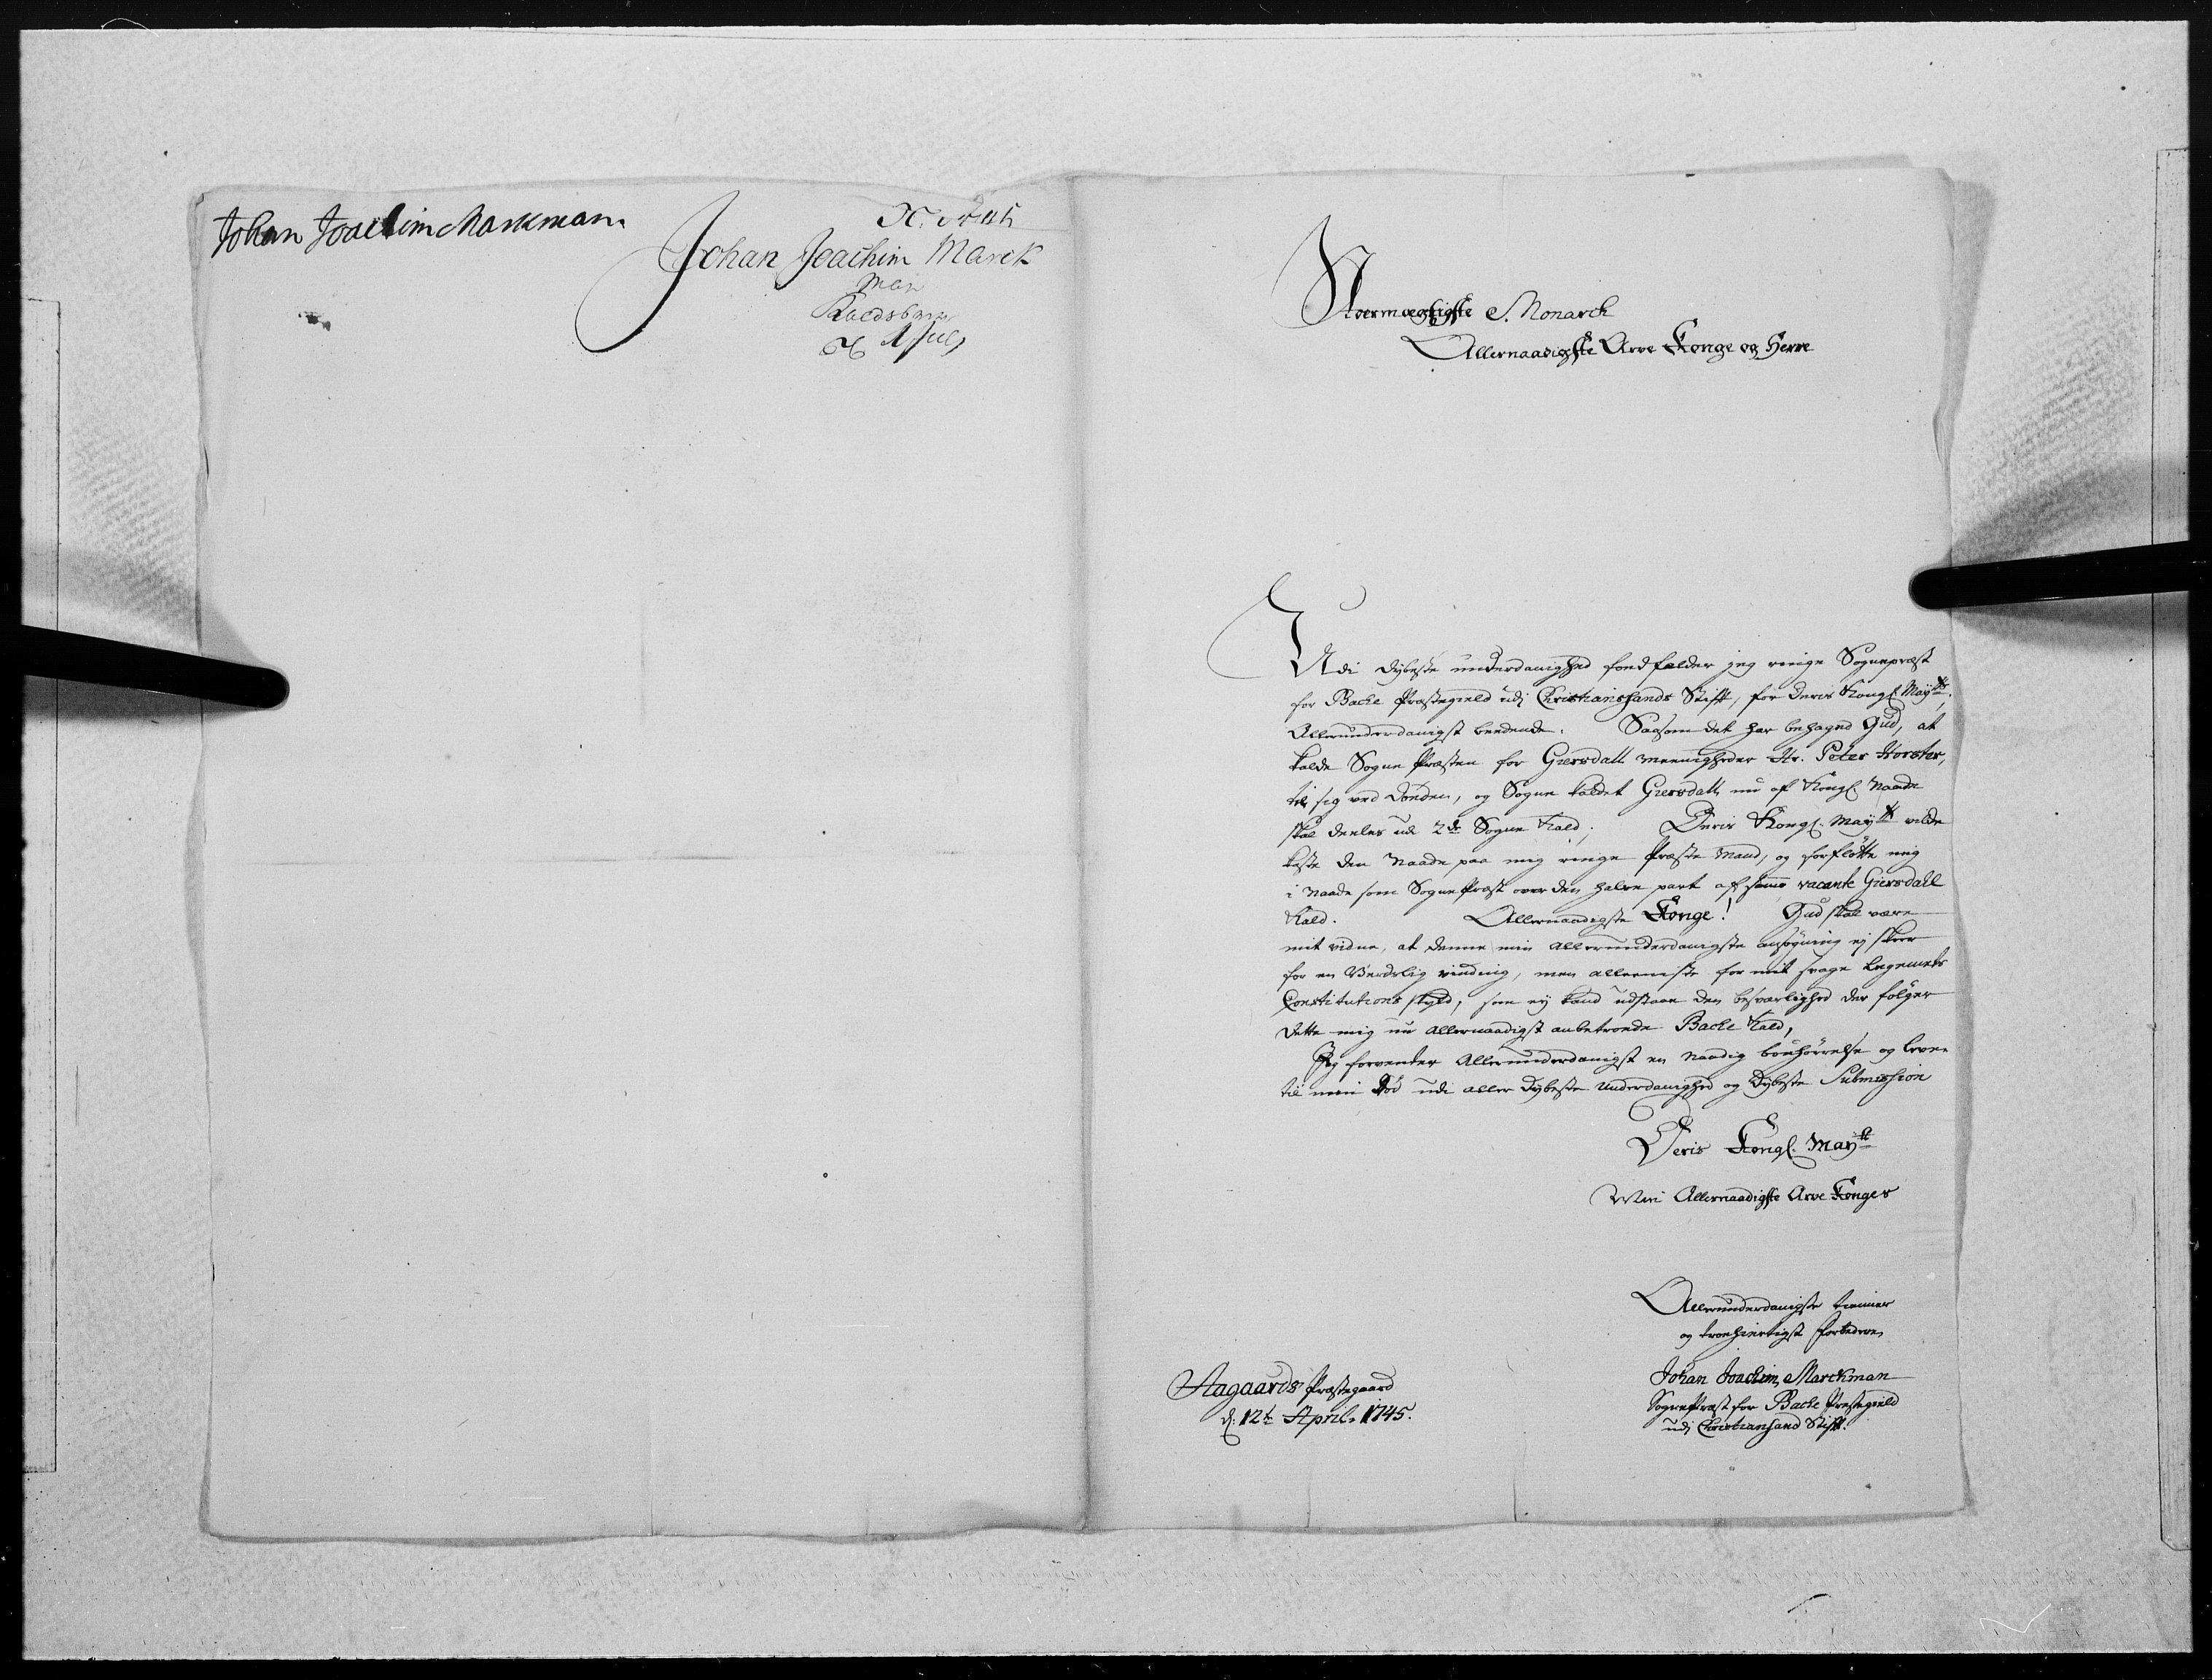 Johan Joachim Markman
Johan Joachim Marck
man
Kaldsbrev
Stormægtigste S. Monarch
Allernaadigste Arve Konge og Herre
Udi dybeste underdanighed fondfalder jeg ringe Sognepræst
for Bacle Præstegield udj Christianssands Stift, for Deris Kongl. Maytt.
Allerunderdanigst bedende. Saasom det har behaged Gud, at
kalde Sogne Præsten for Giersdall meenigheder Hr. Peter Horster,
til sig ved Døden, og Sogne kaldet Giersdall nu af Kongl. Naade
skal deeles udi 2de Sogne Kald; Deris Kongl. Maytt vilde
kaste den Naade paa mig ringe Præste Mand, og forflötte mig
i Naade som Sogne Præst over den halve part af samme vacante Giersdall
Kald. Allernaadigste Konge! Gud skal være
mit vidne, at denne min allerunderdanigste ansøgning ej skeer
for en Verdslig vinding, men alleeniste for mit svage Legemets
Constitutions skyld, som ej kand udstaae den besværlighed der følger
dette mig nu allernaadigst anbetroede Bacle Kald,
Jeg forventer Allerunderdanigst en Naadig bønhørelse og lever
til min Død udi aller dybeste Underdanighed og dybeste Submission
Deris Kongl. Maytt
Min Allernaadigste Arve Konges
Allerunderdanigste tienner
og troehiertigst forbedere
Johan Joachim Marckman
Sognepræst for Bacle Prestegield
udj Christiansand Stift.
Aagaards Præstegaard
d: 12te April. 1745.